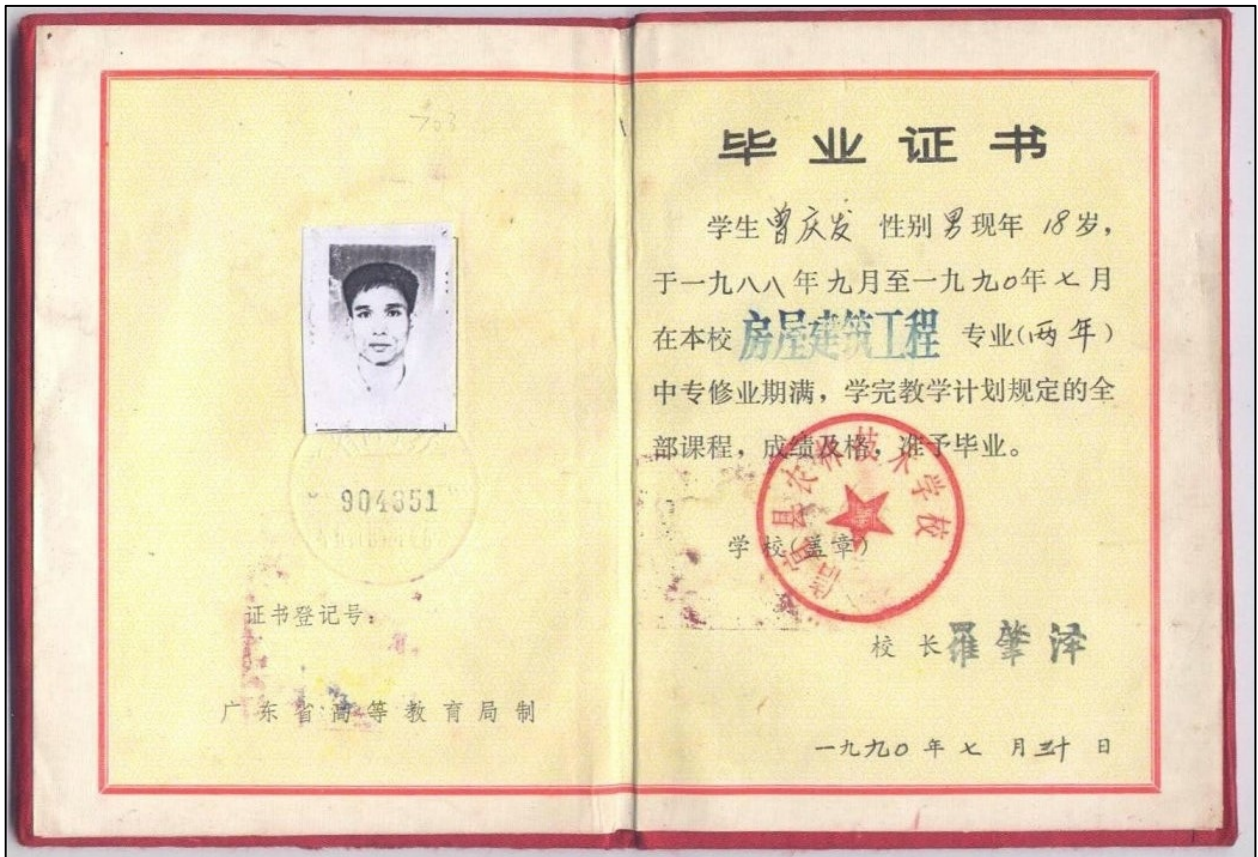 904351
证书登记号：
广东省高等教育局制
毕业证书
学生曾庆发 性别男现年18岁，
于一九八八年九月至一九九〇年七月
在本校房屋建筑工程 专业(两年)
中专修业期满，学完教学计划规定的全
部课程，成绩及格，准予毕业。
信宜县农林技术学校
学校(盖章)
校长罗肇泽
一九九〇年七月三十日